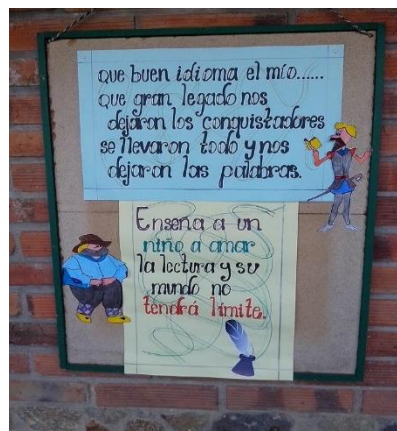 que buen idioma el mío......
que gran legado nos
dejaron los conquistadores
se llevaron todo y nos
dejaron las palabras.
Enseña a un
niño a amar
la lectura y su
mundo no
tendrá límite.